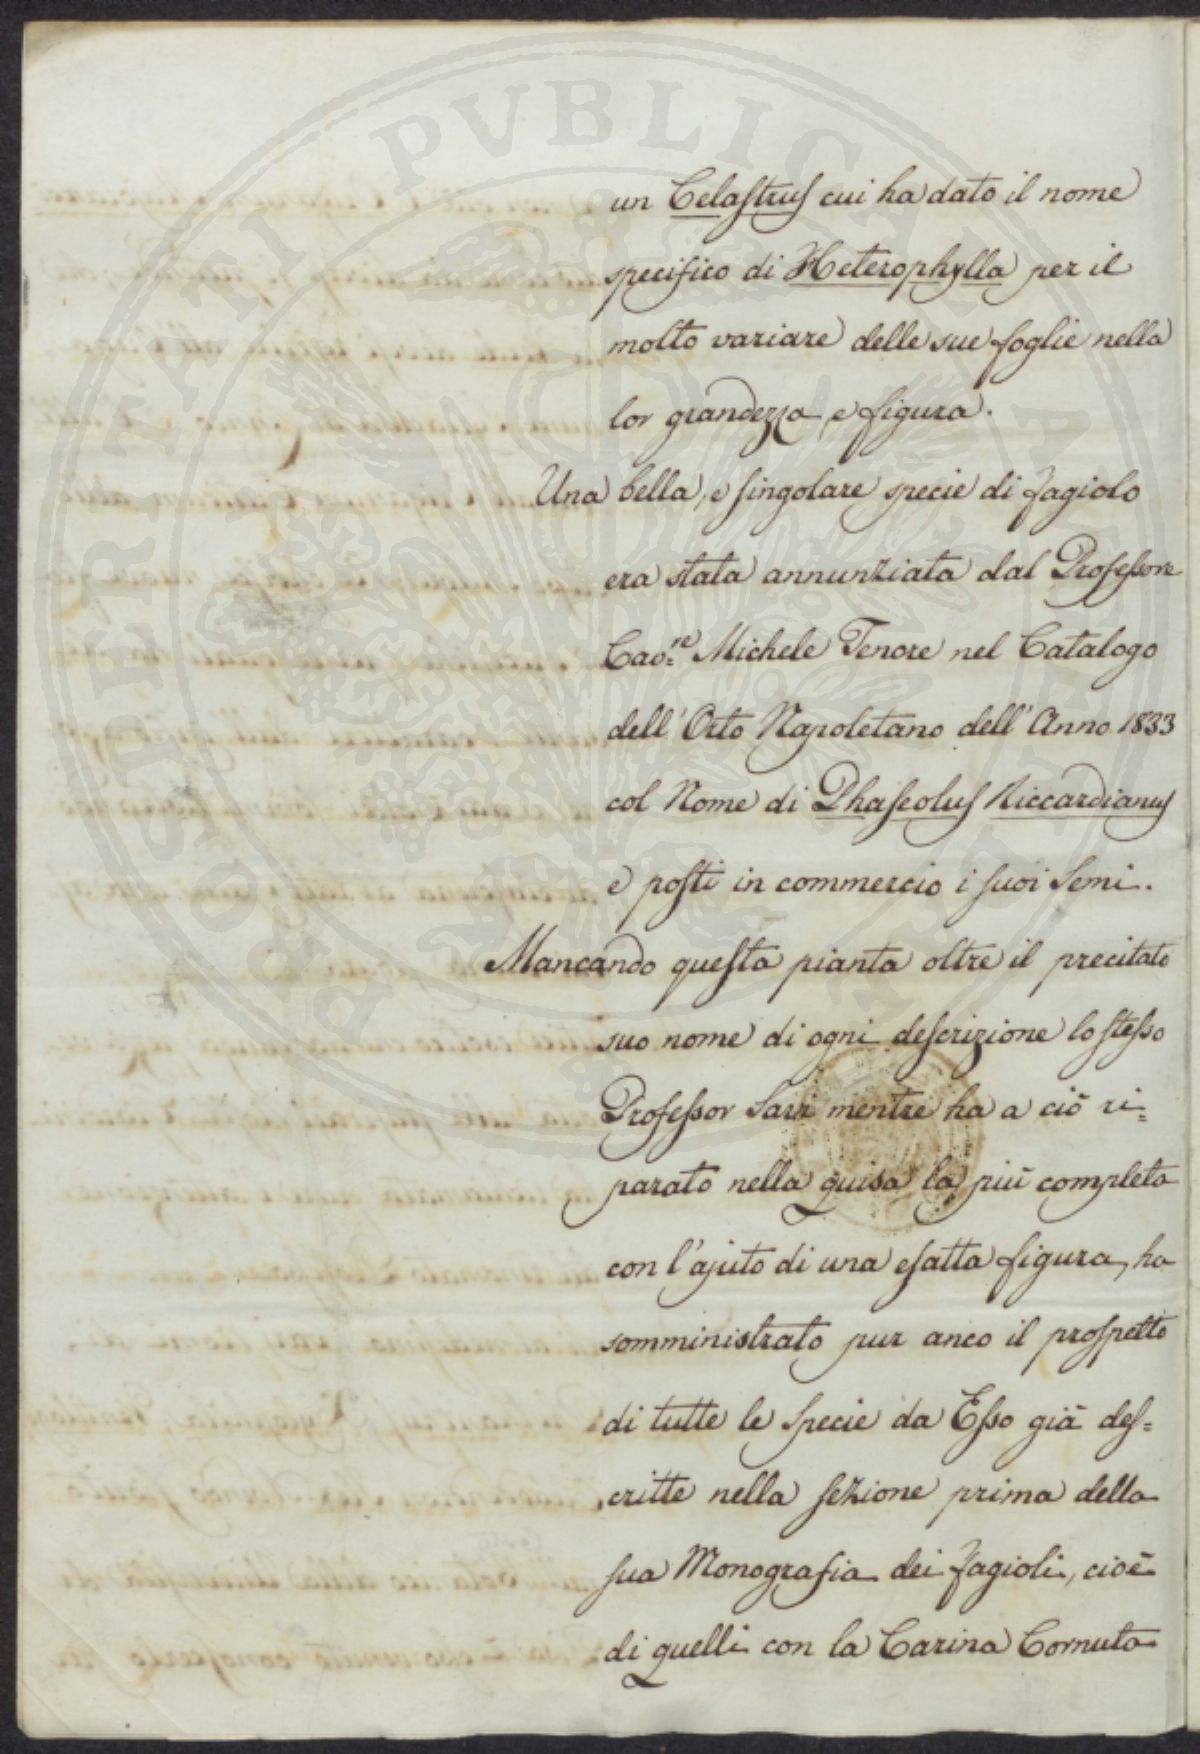 un Celaſtruſ cui ha dato il nome
specifico di Heterophylla per il
molto variare delle sue foglie nella
lor grandezza, e figura.
Una bella, e ſingolare specie di fagiolo
era stata annunziata dal Profeſsore
Cav.re Michele Tenore nel Catalogo
dell' Orto Napoletano dell' Anno 1833
col Nome di Phaſeoluſ Riccardianuſ
e poſti in commercio i ſuoi Semi.
Mancando queſta pianta oltre il precitato
suo nome di ogni deſcrizione lo ſteſso
Profeſsor Savi mentre ha a ciò ri=
parato nella guisa la più completa
con l'ajuto di una eſatta figura, ha
somministrato pur anco il proſpetto
di tutte le Specie da Eſso già deſ=
critte nella ſezione prima della
ſua Monografia dei fagioli, cioè
di quelli con la Carina Cornuta
PROSPERITATI PVBLICAE